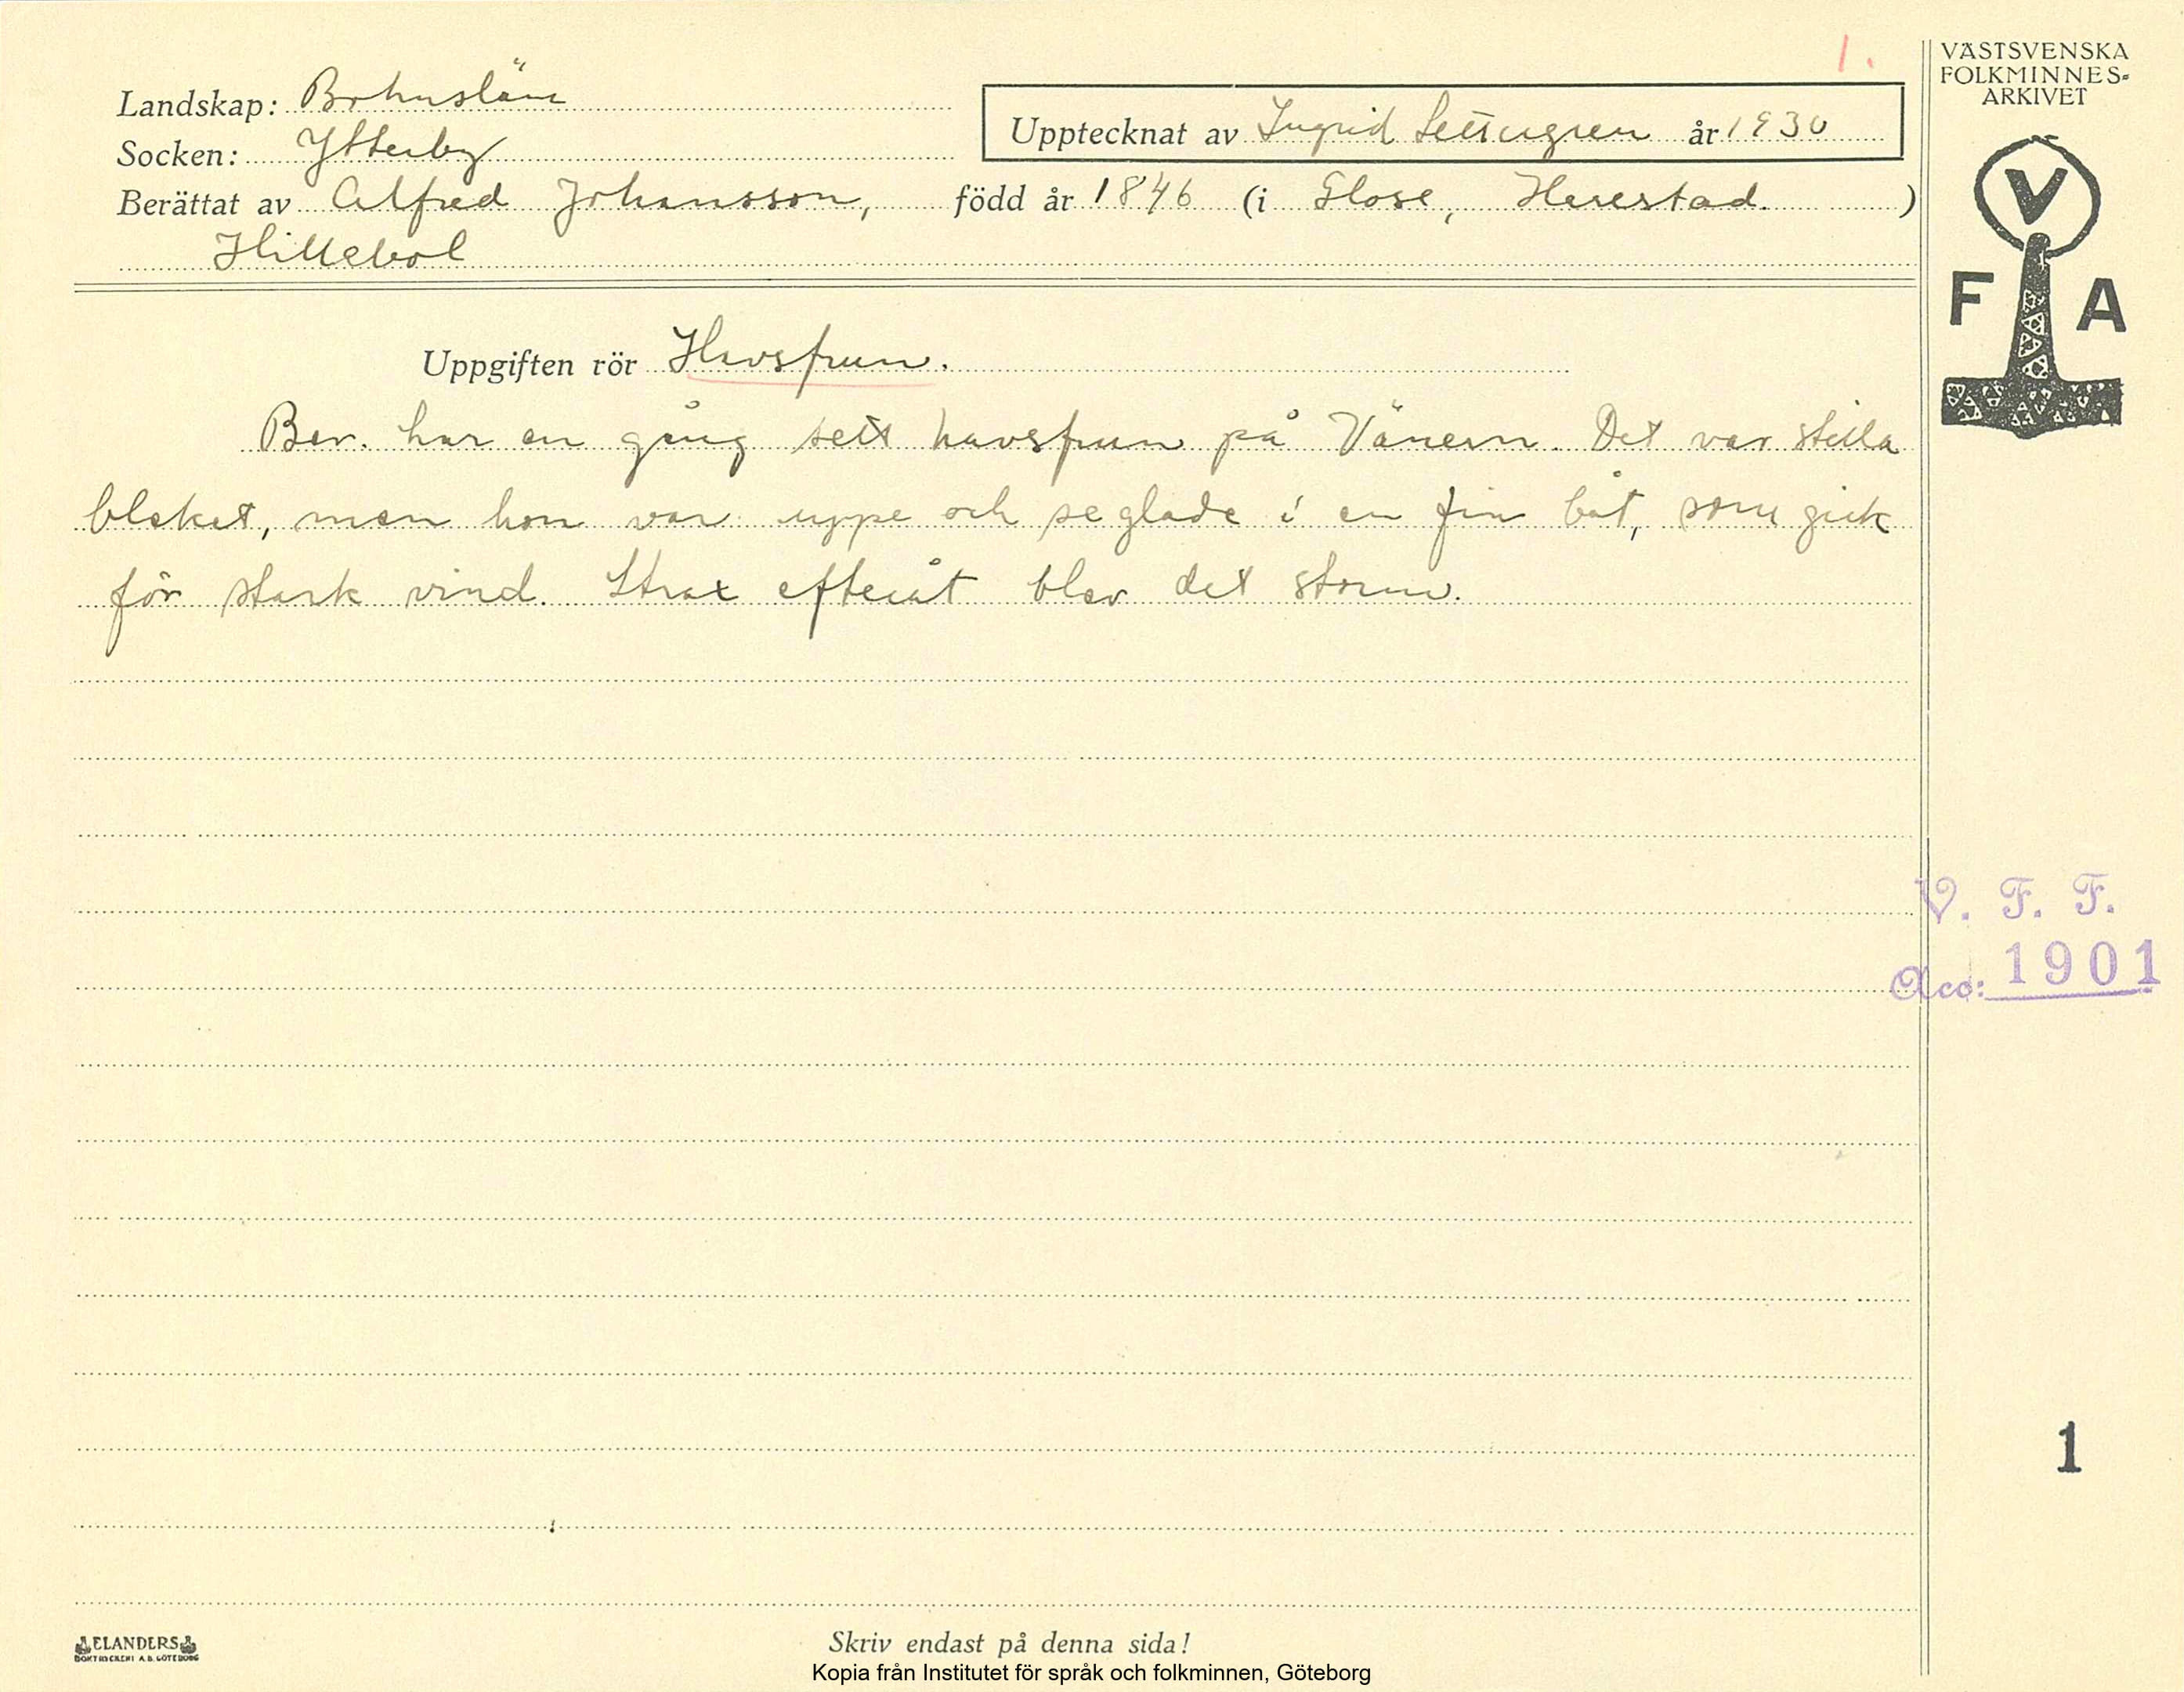 1.
VÄSTSVENSKA
FOLKMINNES-
ARKIVET
Landskap: Bohuslän
Upptecknat av Ingrid år 1930
Socken: Ytterby
Berättat av Alfred Johansson, född år 1846 (i Glose, Herestad. )
Hillebol
V
F A
Uppgiften rör Havsfrun.
Ber. har en gång sett havsfrun på Vänern. Det var stilla
bleket, men hon var uppe och seglade i en fin båt, som gick
för stark vind. Strax efteråt blev det storm.
V. F. F.
Acc: 1901
1
ELANDERS
BOKTRYCKERI A.B. GÖTEBORG
Skriv endast på denna sida!
Kopia från Institutet för språk och folkminnen, Göteborg